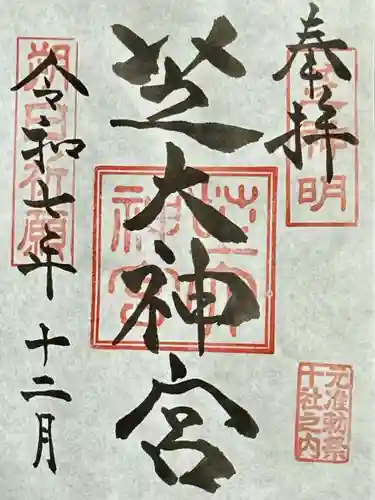 奉拝
芝大神宮
令和七年 十二月
朔日祈願
芝大神宮
元准勅祭
十社之内